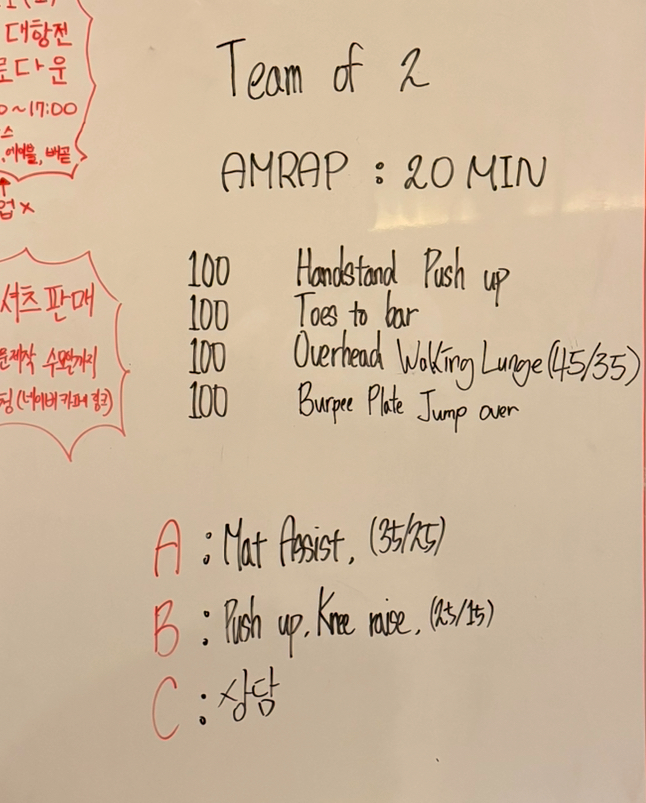 대항전
로다운
0~17:00
스
에이블, 배곧
업 x
셔츠 판매
문제작 수요일까지
청 (네이버카페 링크)
Team of 2
AMRAP : 20 MIN
100 Handstand Push up
100 Toes to bar
100 Overhead Walking Lunge (45/35)
100 Burpee Plate Jump over
A : Mat Assist, (35/25)
B : Push up, Knee raise, (25/15)
C : 상담